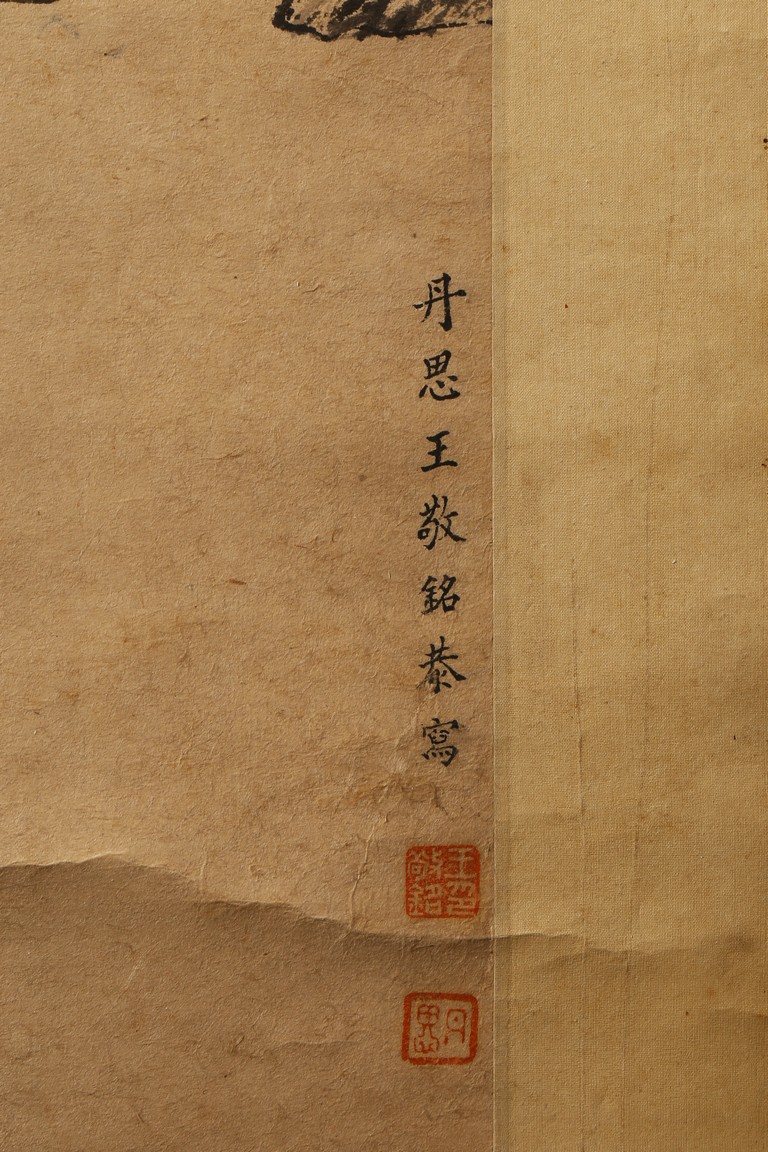 丹思王敬銘恭寫
王敬銘印
丹思